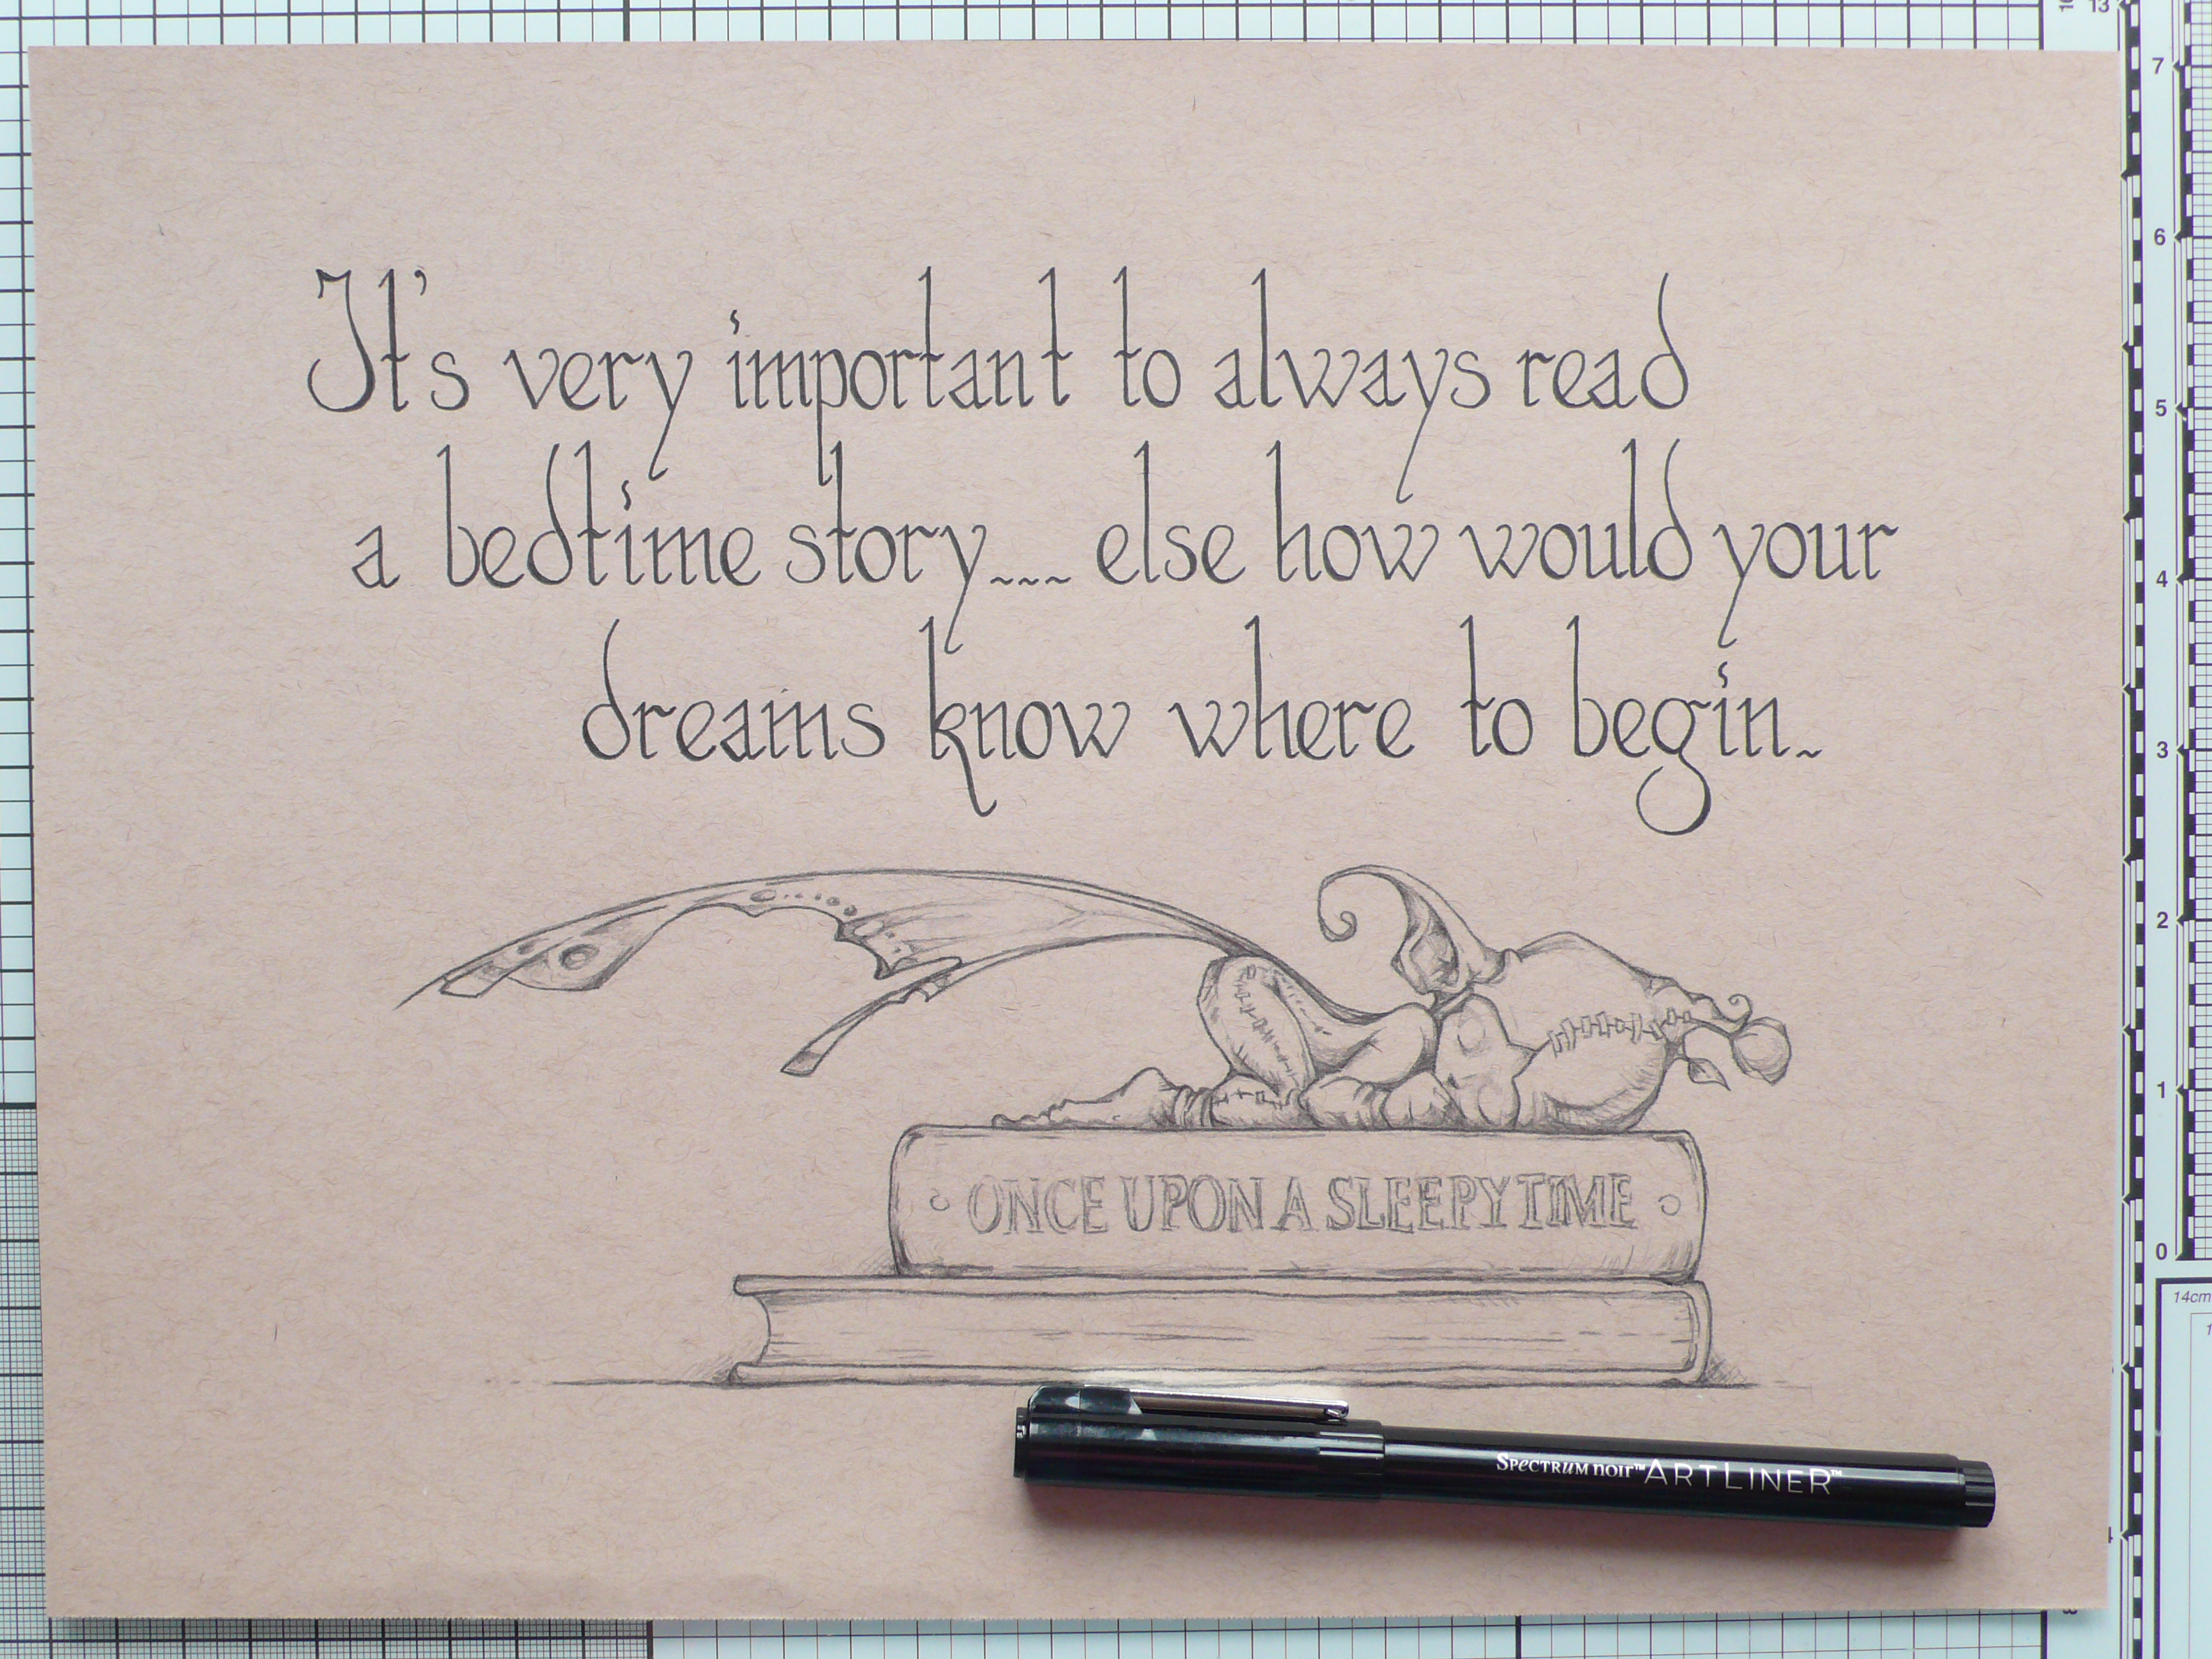 It's very important to always read
a bedtime story.... else how would your
dreams know where to begin.
ONCE UPON A SLEEPY TIME
SPECTRUM NOIR™ ARTLINER™
13
7
6
5
4
3
2
1
0
14cm